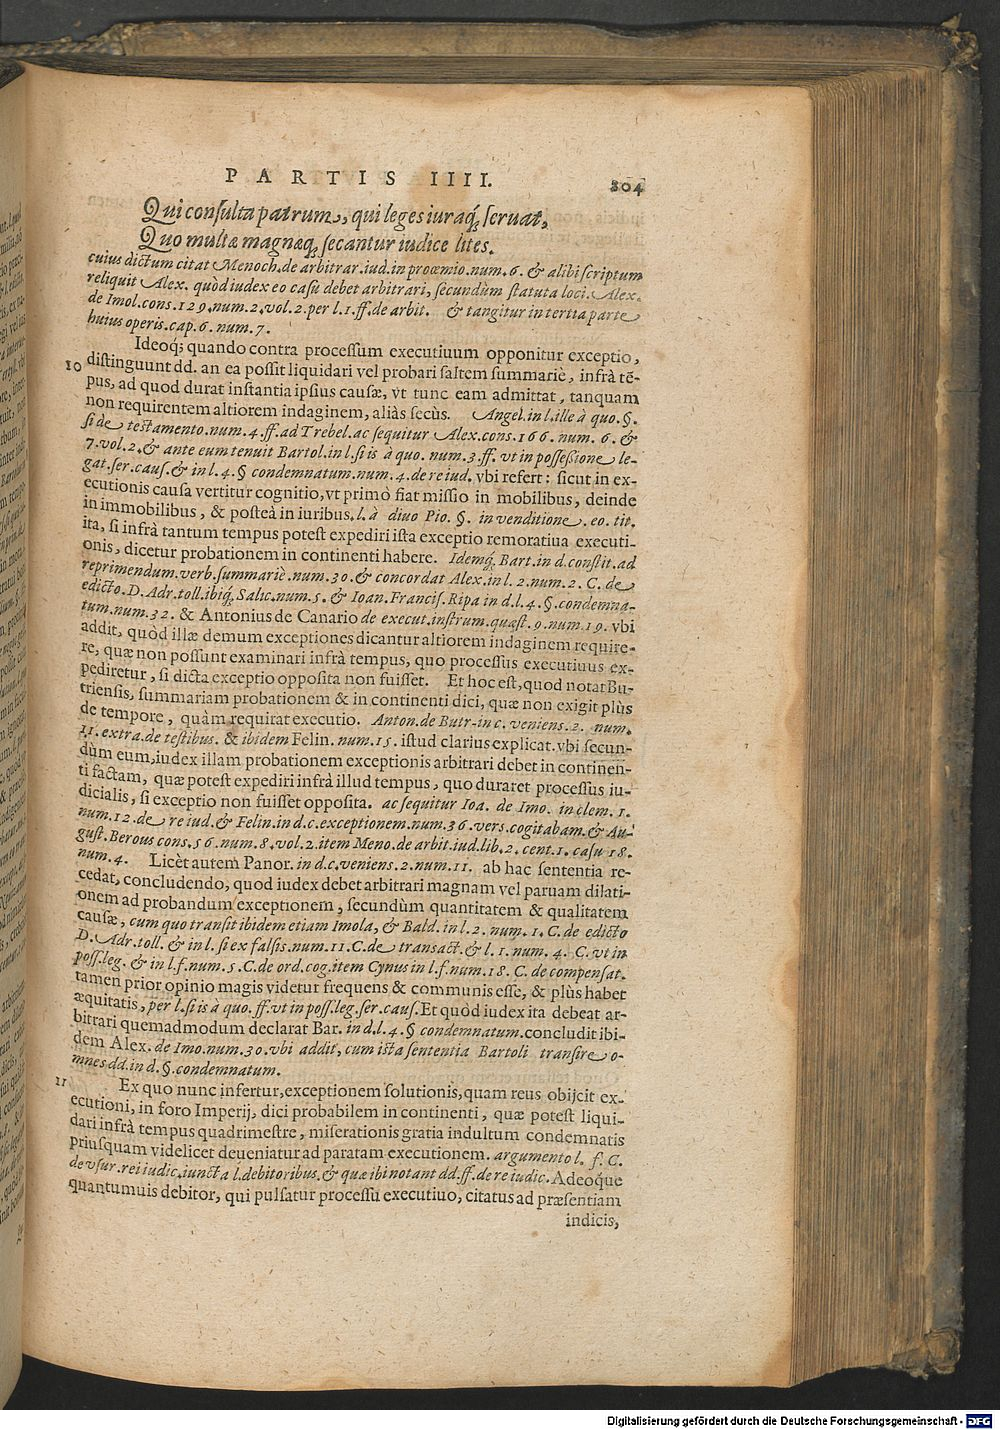 PARTIS IIII. 304
Qui consulta patrum, qui leges iuraq́; seruat,
Quo multæ magnæq́; secantur iudice lites.
cuius dictum citat Menoch. de arbitrar. iud. in proœmio. num. 6. & alibi scriptum
reliquit Alex. quòd iudex eo casu debet arbitrari, secundùm statuta loci. Alex.
de Imol. cons. 129. num. 2. vol. 2. per l. 1. ff. de arbit. & tangitur in tertia parte
huius operis. cap. 6. num. 7.
Ideoq́; quando contra processum executiuum opponitur exceptio,
10 distinguunt dd. an ea possit liquidari vel probari saltem summariè, infrà tē-
pus, ad quod durat instantia ipsius causæ, vt tunc eam admittat, tanquam
non requirentem altiorem indaginem, aliàs secùs. Angel. in l. ille à quo. §.
si de testamento. num. 4. ff. ad Trebel. ac sequitur Alex. cons. 166. num. 6. &
7. vol. 2. & ante eum tenuit Bartol. in l. si is à quo. num. 3. ff. vt in possessione le-
gat. ser. caus. & in l. 4. § condemnatum. num. 4. de re iud. vbi refert: sicut in ex-
ecutionis causa vertitur cognitio, vt primò fiat missio in mobilibus, deinde
in immobilibus, & posteà in iuribus, l. à diuo Pio. §. in venditione. eo. tit.
ita, si infrà tantum tempus potest expediri ista exceptio remoratiua executi-
onis, dicetur probationem in continenti habere. Idemq́; Bart. in d. constit. ad
reprimendum. verb. summariè. num. 30. & concordat Alex. in l. 2. num. 2. C. de
edicto. D. Adr. toll. ibiq́; Salic. num. 5. & Ioan. Francis. Ripa in d. l. 4. §. condemna-
tum. num. 32. & Antonius de Canario de execut. instrum. quæst. 9. num. 19. vbi
addit, quòd illæ demum exceptiones dicantur altiorem indaginem require-
re, quæ non possunt examinari infrà tempus, quo processus executiuus ex-
pediretur, si dicta exceptio opposita non fuisset. Et hoc est, quod notat Bu-
triensis, summariam probationem & in continenti dici, quæ non exigit plùs
de tempore, quàm requirat executio. Anton. de Butr. in c. veniens. 2. num.
11. extra. de testibus. & ibidem Felin. num. 15. istud clarius explicat. vbi secun-
dùm eum, iudex illam probationem exceptionis arbitrari debet in continen-
ti factam, quæ potest expediri infrà illud tempus, quo duraret processus iu-
dicialis, si exceptio non fuisset opposita. ac sequitur Ioa. de Imo. in clem. 1.
num. 12. de re iud. & Felin. in d. c. exceptionem. num. 36. vers. cogitabam. & Au-
gust. Berous cons. 56. num. 8. vol. 2. item Meno. de arbit. iud. lib. 2. cent. 1. casu 18.
num. 4. Licèt autem Panor. in d. c. veniens. 2. num. 11. ab hac sententia re-
cedat, concludendo, quod iudex debet arbitrari magnam vel paruam dilati-
onem ad probandum exceptionem, secundùm quantitatem & qualitatem
causæ, cum quo transit ibidem etiam Imola, & Bald. in l. 2. num. 1. C. de edicto
D. Adr. toll. & in l. si ex falsis. num. 11. C. de transact. & l. 1. num. 4. C. vt in
poss. leg. & in l. f. num. 5. C. de ord. cog. item Cynus in l. f. num. 18. C. de compensat.
tamen prior opinio magis videtur frequens & communis esse, & plùs habet
æquitatis, per l. si is à quo. ff. vt in poss. leg. ser. caus. Et quòd iudex ita debeat ar-
bitrari quemadmodum declarat Bar. in d. l. 4. § condemnatum. concludit ibi-
dem Alex. de Imo. num. 30. vbi addit, cum ista sententia Bartoli transire o-
mnes dd. in d. §. condemnatum.
11 Ex quo nunc infertur, exceptionem solutionis, quam reus obijcit ex-
ecutioni, in foro Imperij, dici probabilem in continenti, quæ potest liqui-
dari infrà tempus quadrimestre, miserationis gratia indultum condemnatis
priusquam videlicet deueniatur ad paratam executionem. argumento l. f. C.
de vsur. rei iudic. iuncta l. debitoribus. & quæ ibi notant dd. ff. de re iudic. Adeoque
quantumuis debitor, qui pulsatur processu executiuo, citatus ad præsentiam
iudicis,
Digitalisierung gefördert durch die Deutsche Forschungsgemeinschaft - DFG